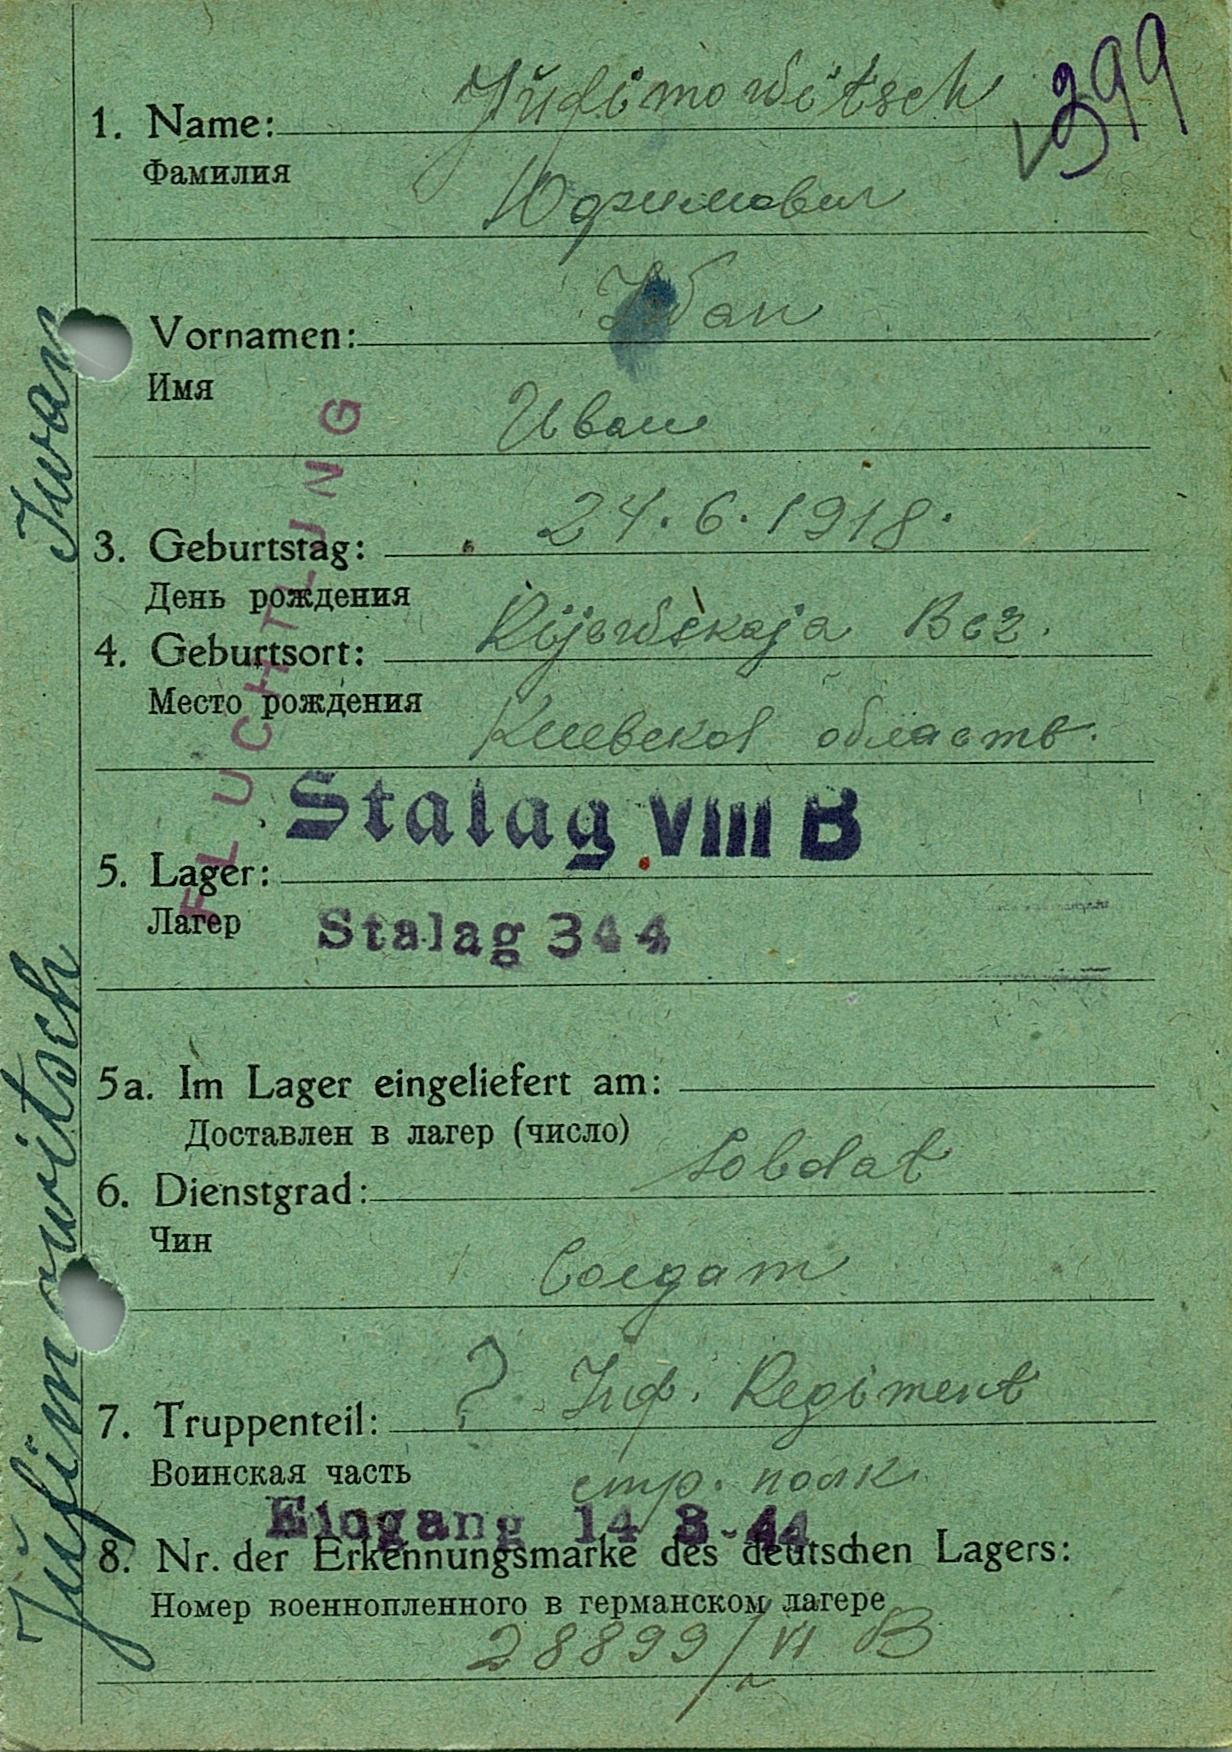 399
Jufimowitsch
1. Name:
Фамилия
Юфимович
Iwan
Vornamen:
Имя
Иван
24.6.1918.
3. Geburtstag:
День рождения
Kijewskaja Bez.
4. Geburtsort:
Место рождения
Киевской область.
Stalag VIII B
5. Lager:
Лагер
Stalag 344
5a. Im Lager eingeliefert am:
Доставлен в лагер (число)
Soldat
6. Dienstgrad:
Чин
Солдат
? Inf. Regiment
7. Truppenteil:
Воинская часть
стр. полк
Eingang 14 3-44
8. Nr. der Erkennungsmarke des deutschen Lagers:
Номер военнопленного в германском лагере
28899/VI B
FLUCHTLING
Jufimowitsch Iwan